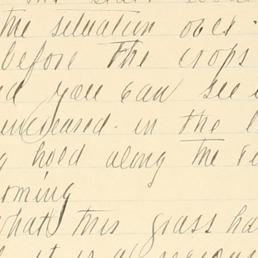 the situation over
before the crops
you can see
increased in the
hold along the
orming
what this grass ha
it is a serious